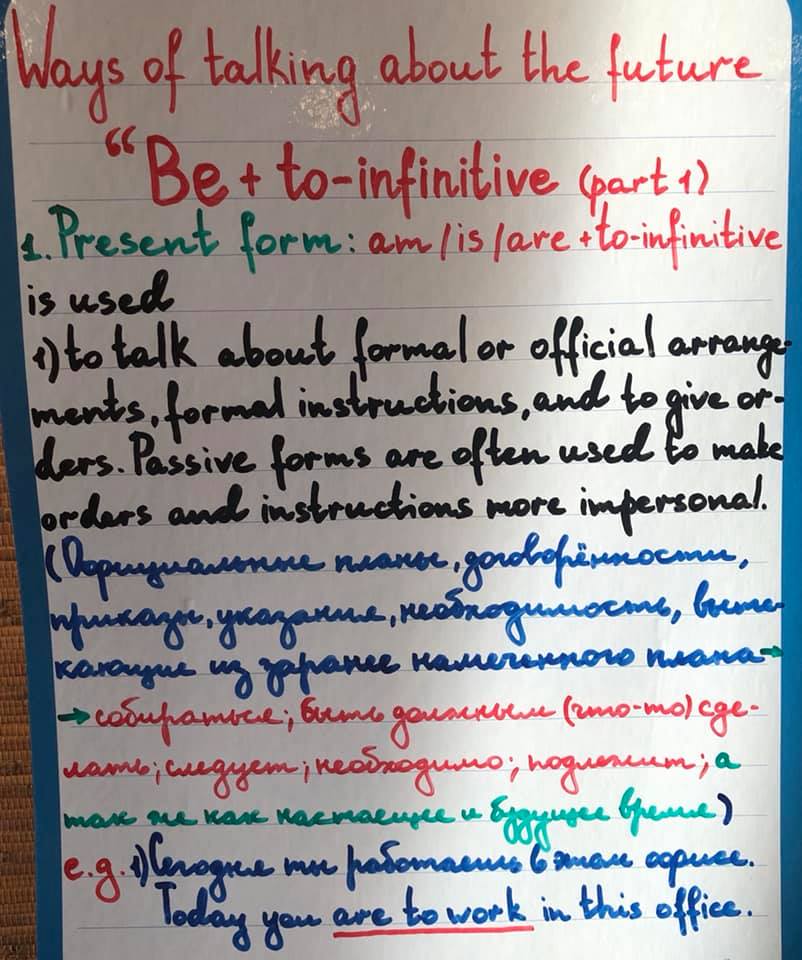 Ways of talking about the future
“Be + to-infinitive (part 1)
1. Present form: am/is/are +to-infinitive
is used
1) to talk about formal or official arrange-
ments, formal instructions, and to give or-
ders. Passive forms are often used to make
orders and instructions more impersonal.
(Официальные планы, договорённости,
приказы, указания, необходимость, выте-
кающие из заранее намеченного плана→
→ собираться; быть должным (что-то) сде-
лать; следует; необходимо; подлежит; а
так же как настоящее и будущее время)
e.g. 1) Сегодня ты работаешь в этом офисе.
Today you are to work in this office.